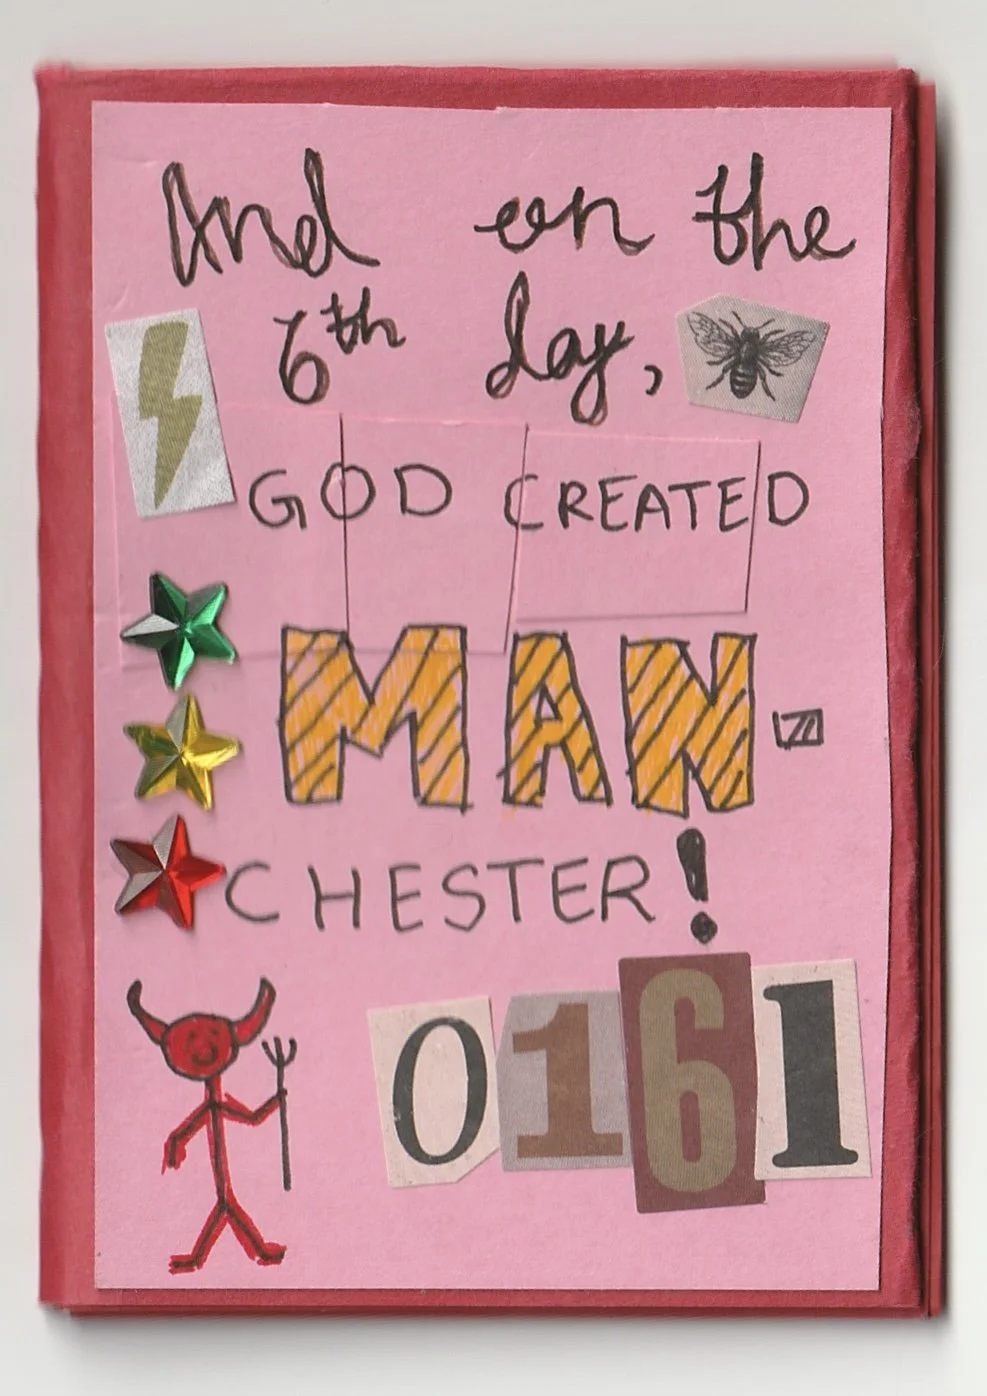 And on the
6th day,
GOD CREATED
MAN-
CHESTER!
0161